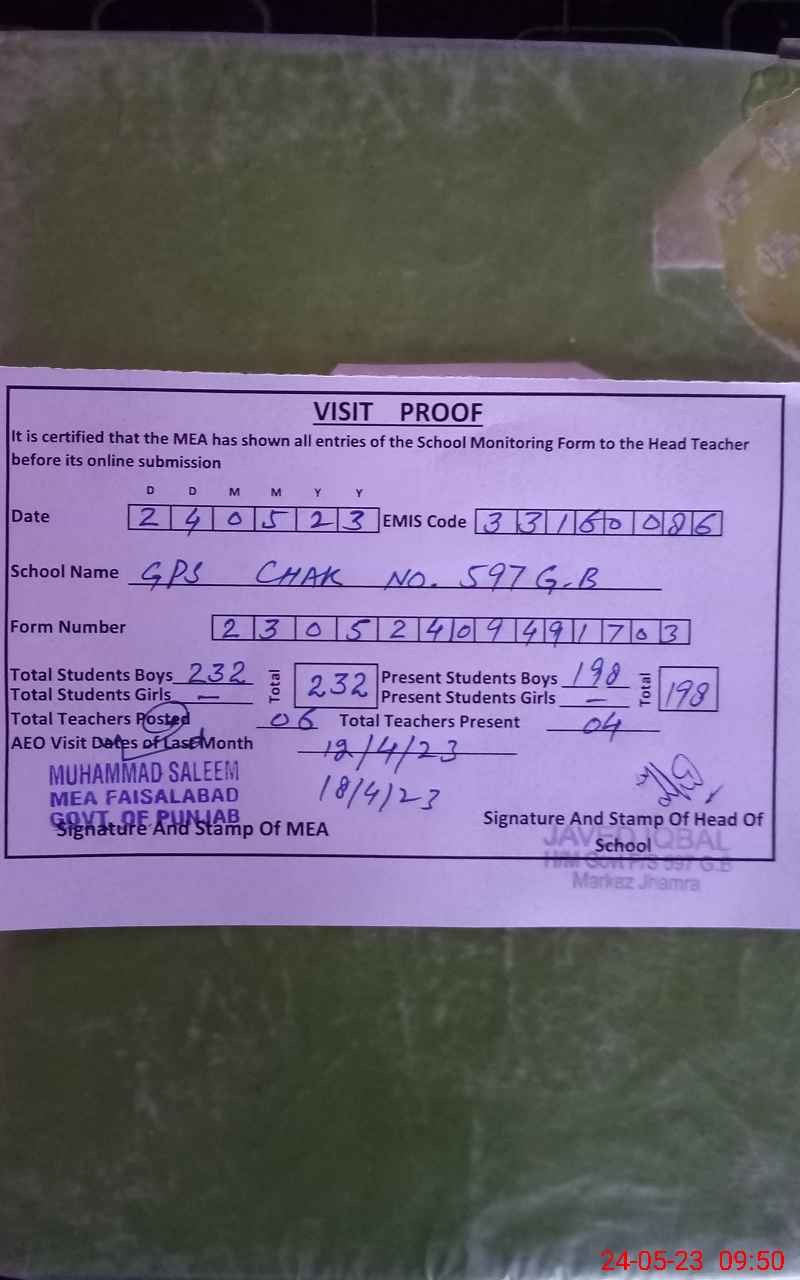 VISIT PROOF
It is certified that the MEA has shown all entries of the School Monitoring Form to the Head Teacher
before its online submission
D D M M Y Y
Date 2 4 0 5 2 3 EMIS Code 3 3 1 6 0 0 8 6
School Name GPS CHAK NO. 597 G.B
Form Number 2 3 0 5 2 4 0 9 4 9 1 7 0 3
Total Students Boys 232 Total 232 Present Students Boys 198 Total 198
Total Students Girls — Present Students Girls —
Total Teachers Posted 06 Total Teachers Present 04
AEO Visit Dates of Last Month 12/4/23
18/4/23
MUHAMMAD SALEEM
MEA FAISALABAD
GOVT. OF PUNJAB
Signature And Stamp Of MEA
Signature And Stamp Of Head Of
School
JAVED IQBAL
H/M Govt P/S 597 G.B
Markaz Jhamra
24-05-23 09:50